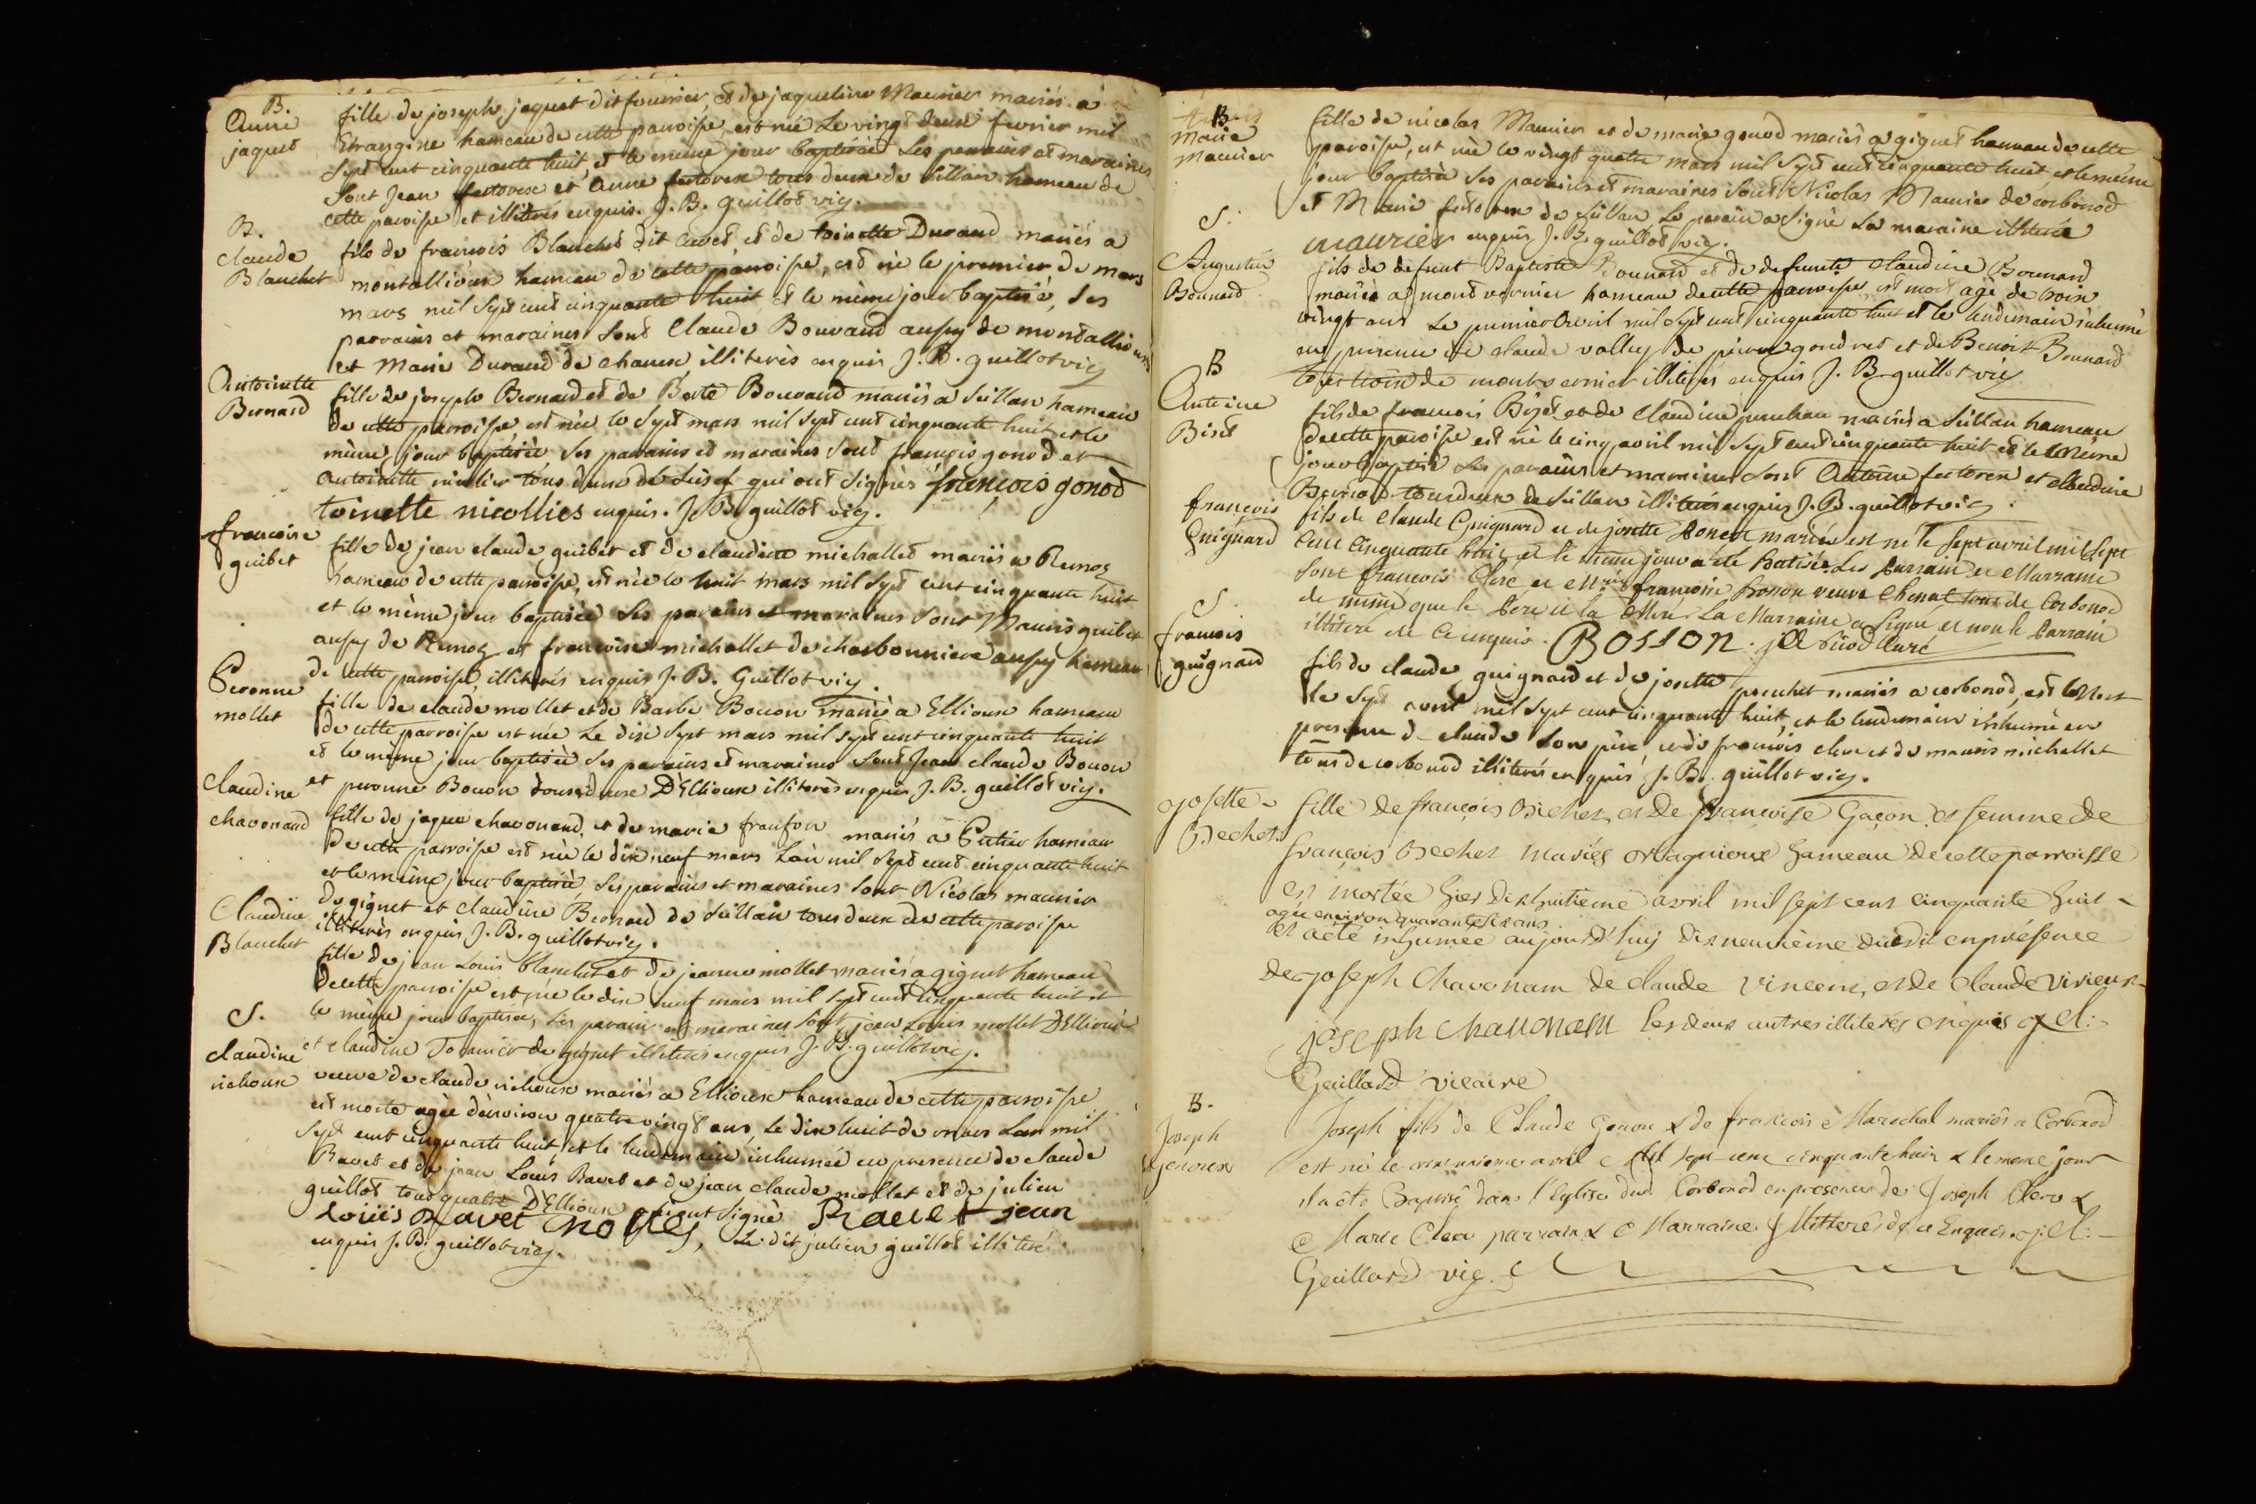 B.
Anne
jaquet
fille de joseph jaquet dit fournier, et de jaqueline Maurier mariés a
Etrangine hameau de cette parroisse, est née Le vingt deux fevrier mil
Sept cent cinquante huit, et le même jour baptisée Ses parrains et maraines
Sont Jean et Anne tous deux de Sillan hameau de
cette paroisse et illiterés enquis. J. B. guillot vic.
B.
claude
Blanchet
fils de francois Blanchet dit et de toinette Durand mariés a
montallioux hameau de cette parroisse, est né le premier de mars
mars mil Sept cent cinquante huit et le même jour baptisé, Ses
parrains et maraines Sont Claude Bouvand aussy de montallioux
et Marie Durand de chanux, illiterés enquis J. B. guillot vic
Antoinette
Bernard
fille de joseph Bernard et de Berte Bouvand mariés a Sillan hameau
de cette parroisse est née le Sept mars mil sept cent cinquante huit et le
même jour baptisée Ses parrains et maraines Sont françois gonod et
Antoinette tous deux de qui ont Signés françois gonod
toinette nicollies enquis. J. B. guillot vic.
francoise
guibet
fille de jean claude guibet et de claudine michallet mariés a Remoz
hameau de cette paroisse, est née le huit mars mil Sept cent cinquante huit
et le même jour baptisée Ses parains et maraines Sont Mauris guibet
aussy de Remoz et francoise michallet de charbonniere aussy hameau
de cette parroisse, illiterés enquis J. B. Guillot vic.
Peronne
mollet
fille de claude mollet et de Barbe Bouon mariés a Ellioux hameau
de cette parroisse est née Le dix Sept mars mil sept cent cinquante huit
et le même jour baptisée Ses parains et maraines Sont Jean claude Bouon
et peronne Bouon tous deux D'Ellioux illiterés enquis J. B. guillot vic.
claudine
chavonand
fille de jaque chavonand, et de marie franfon mariés a hameau
de cette parroisse est née le dix neuf mars L'an mil Sept cent cinquante huit
et le même jour baptisée, Ses parains et maraines Sont Nicolas maurier
de gignet et claudine Bernard de Sillan tous deux de cette paroisse
illiterés enquis J. B. guillot vic.
Claudine
Blanchet
fille de jean Louis blanchet et de jeanne mollet mariés a gignet hameau
de cette parroisse est née le dix neuf mars mil Sept cent cinquante huit et
le même jour baptisée, Ses parain et maraines Sont jean Louis mollet D'Ellioux
et claudine de gignet illiterés enquis J. B. guillot vic.
S.
claudine
richoux
veuve de claude richoux mariés a Ellioux hameau de cette parroisse
est morte agée d'environ quatre vingt ans, Le dix huit de mars L'an mil
Sept cent cinquante huit, et le lendemain inhumée en presence de claude
Ravet et de jean Louis Ravet et de jean claude mollet et de julien
guillot tous quatre D'Ellioux qui ont Signé Ravet jean
Louis Ravet mollet, Le dit julien guillot illiteré
enquis J. B. guillot vic.
B.
Marie
Maurier
fille de nicolas Maurier et de marie gonod mariés a gignet hameau de cette
paroisse, est née le vingt quatre mars mil Sept cent cinquante huit, et le même
jour baptisée Ses parains et maraines Sont Nicolas Maurier de corbonod
et Marie de Sillan Le parain a Signé La maraine illiterée
maurier enquis J. B. guillot vic.
S.
Augustin
Bonnard
fils de defunt Baptiste Bonnard et de defunte claudine Bonnard
mariés a mont vernier hameau de cette parroisse est mort agé de
vingt ans Le premier Avril mil Sept cent cinquante huit et le lendemain inhumé
en presence de claude de pierre et de Benoit Bonnard
tous trois de mont vernier illiterés enquis J. B. guillot vic.
B
Antoine
Biset
fils de francois Biset et de claudine mariés a Sillan hameau
de cette paroisse est né le cinq avril mil Sept cent cinquante huit et le même
jour baptisé Ses parains et maraines Sont Antoine et claudine
tous deux de Sillan illiterés enquis J. B. guillot vic.
francois
Guignard
fils de claude Guignard et de josette mariés est né le Sept avril mil Sept
Cent Cinquante huit et le même jour a été Batisé Les Parrain et Marraine
Sont francois Clerc et francoise Bosson veuve tous de Corbonod
de même que le Pere et la Mere. La Marraine a Signé et non le Parrain
illiteré de ce enquis. BOSSON. Curé
S.
francois
guignard
fils de claude guignard et de josette mariés a corbonod, est Mort
le Sept avril mil Sept cent cinquante huit, et le lendemain inhumé en
presence de claude Son père et de francois clerc et de mauris michallet
tous de corbonod illiterés enquis J. B. guillot vic.
Josette
Bechet
fille de françois Bechet, et de françoise Gaçon, et femme de
françois Bechet Mariés hameau de cette parroisse
est mortée hier dixhuitieme avril mil sept cent cinquante huit
agée environ quarante six ans
et a été inhumée aujourd'huy dixneuvième dudit en présence
de joseph Chavonam de claude Vincent, et de Claude
joseph chavonam les deux autres illiterés enquis
Gaillard vicaire
B.
Joseph
Genoux
Joseph fils de Claude Genou & de francoise Marechal mariés a Corbonod
est né le avril Mil sept cent cinquante huit & le meme jour
il a eté Baptisé dans l'Eglise dud. Corbonod en presence de Joseph Clerc &
Marie Clerc parrain & Marraine Illitterés de ce Enquis.
Gaillard vic.